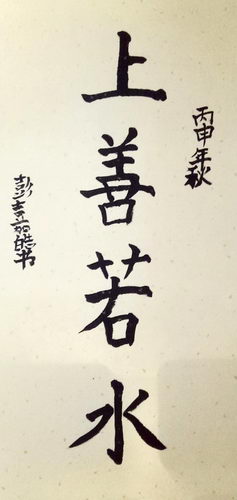 丙申年秋
上善若水
彭嘉皓书